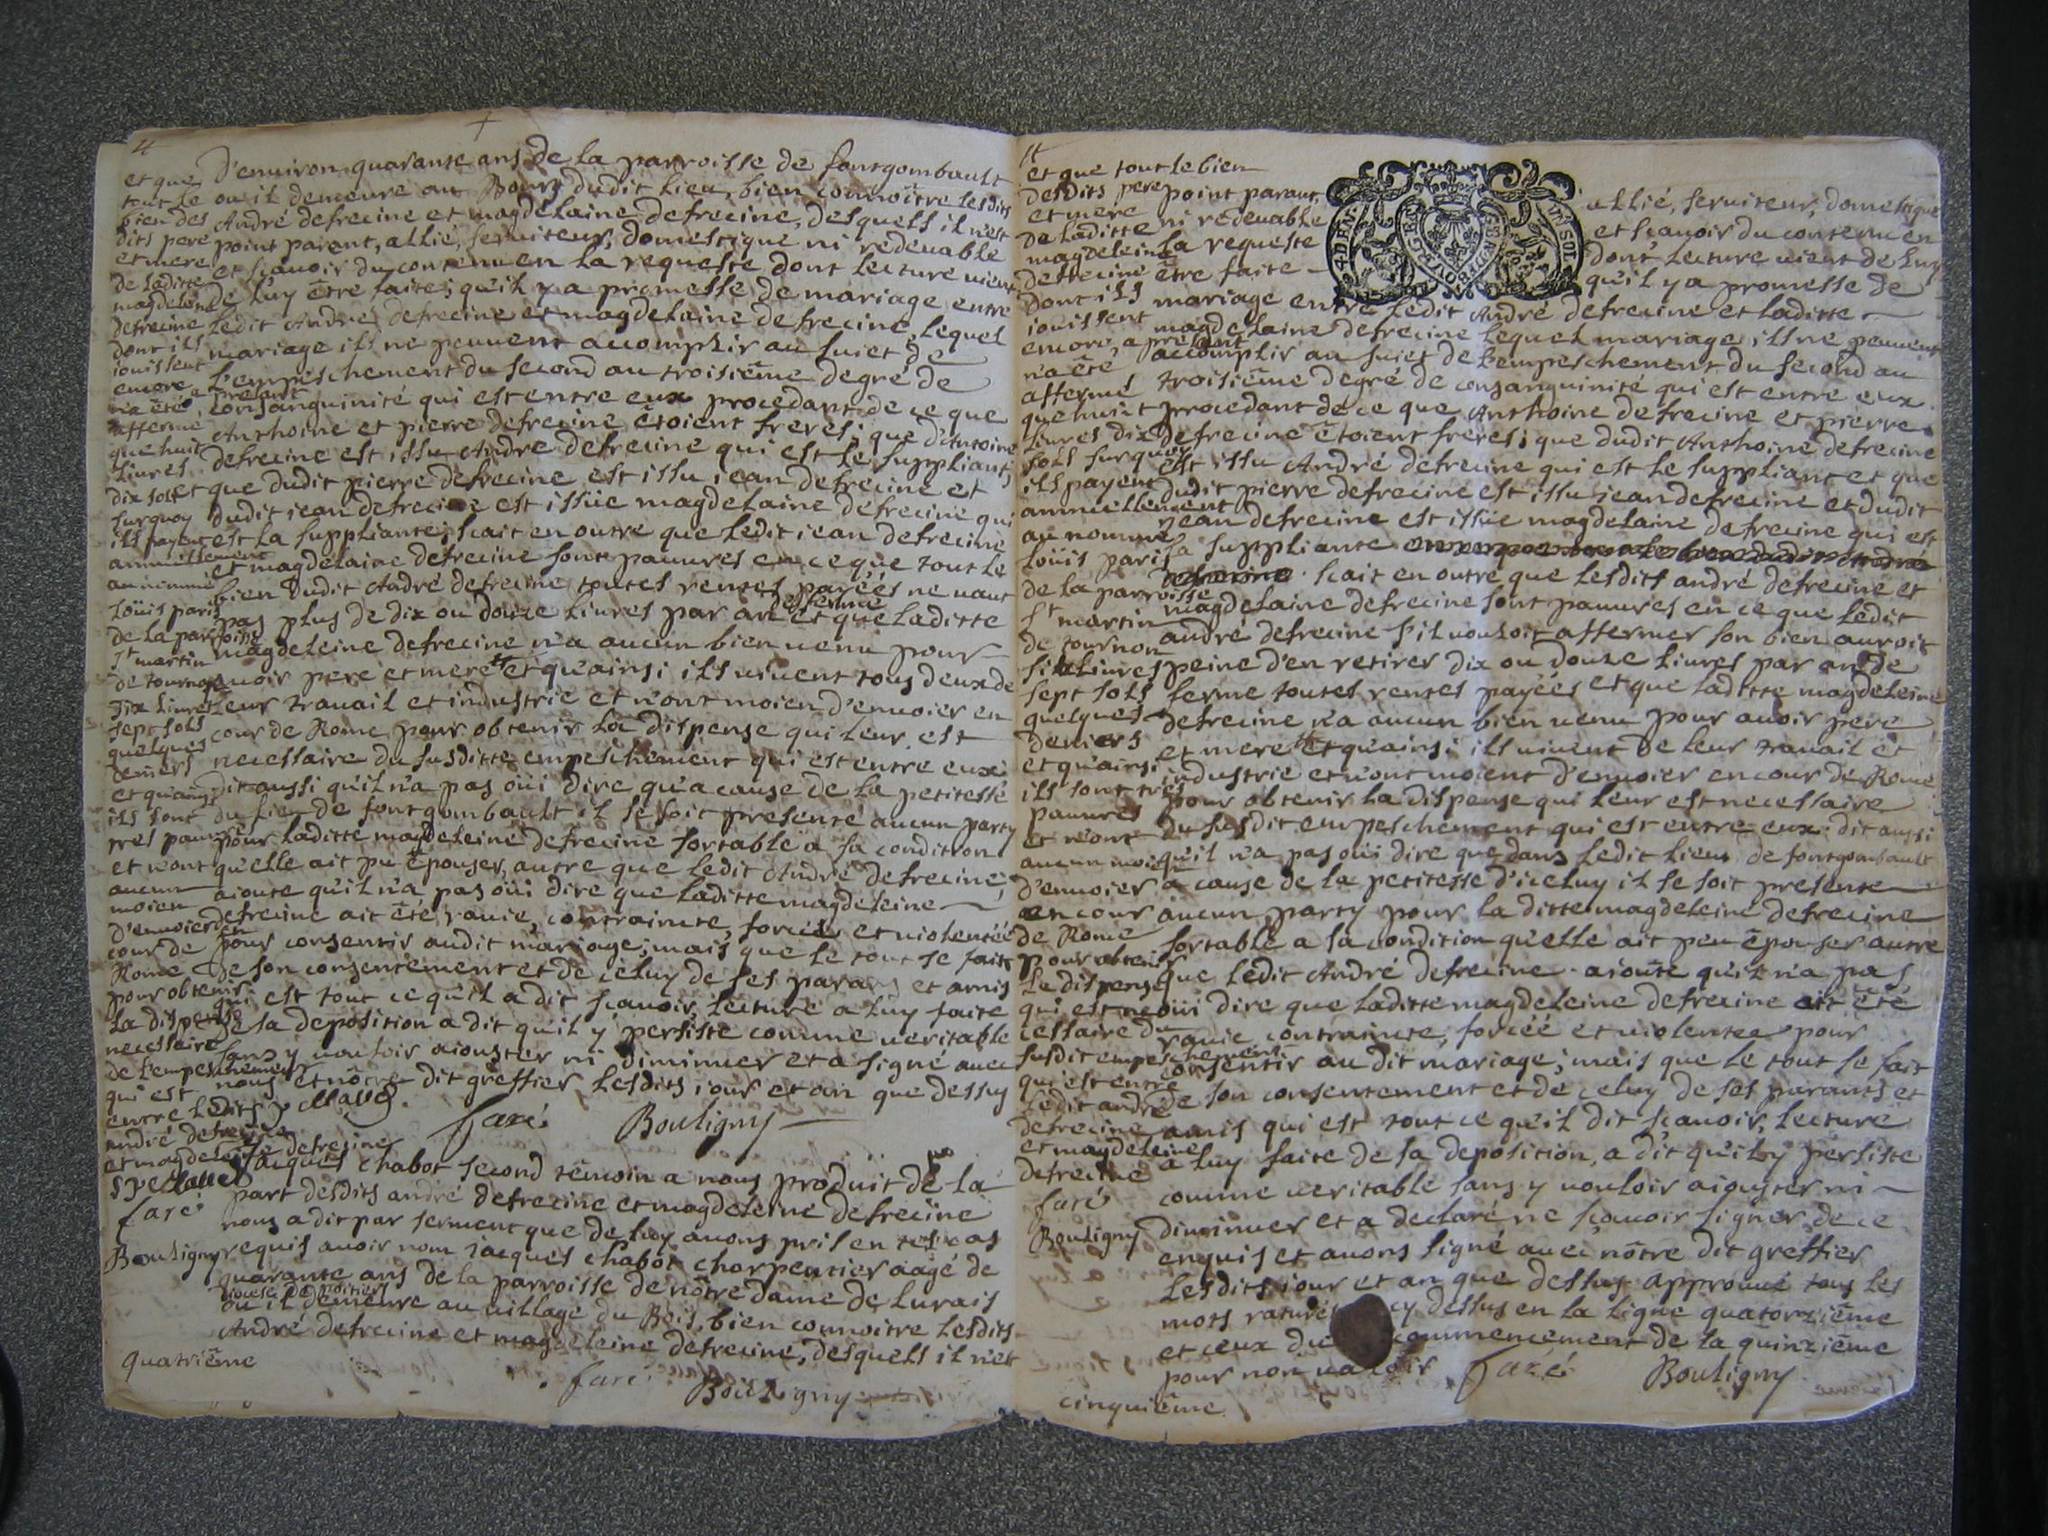 d'environ quarante ans de la parroisse de fontgombault
ou il demeure au Bourg dudit lieu, bien connoître lesdits
André defrecine et magdelaine defrecine, desquels il n'est
point parent, allié, serviteur, domestique ni redevable
et sçavoir du contenu en la requeste dont lecture vient
de luy être faite; qu'il y a promesse de mariage entre
ledit André defrecine et magdelaine defrecine, lequel
mariage ils ne peuvent accomplir au sujet de
l'empeschement du second au troisiême degré de
consanguinité qui est entre eux procedant de ce que
Anthoine et pierre defrecine êtoient freres; que d'Antoine
defrecine est issu André defrecine qui est le suppliant,
et que dudit pierre defrecine est issu jean defrecine et
dudit jean defrecine est issüe magdelaine defrecine qui
est la suppliante; scait en outre que ledit jean defrecine
et magdelaine defrecine sont pauvres en ce que tout le
bien dudit André defrecine toutes rentes payéés ne vaut
pas plus de dix ou douze livres par an de ferme et que laditte
magdeleine defrecine n'a aucun bien venu pour
avoir pere et mere # et qu'ainsi ils vivent tous deux de
leur travail et industrie et n'ont moien d'envoier en
cour de Rome pour obtenir la dispense qui leur est
necessaire du susditte empeschement qui est entre eux;
dit aussi qu'il n'a pas oüi dire qu'a cause de la petitesse
du lieu de fontgombault il se soit presenté aucun party
pour laditte magdeleine defrecine sortable a sa condition
qu'elle ait pu êpouser, autre que ledit André defrecine;
ajoute qu'il n'a pas oüi dire que laditte magdeleine
defrecine ait êté ravie, contrainte, forcée et violentée
pour consentir audit mariage; mais que le tout se fait
de son consentement et de celuy de ses parans et amis
qui est tout ce qu'il a dit sçavoir, lecture a luy faite
de sa deposition a dit qu'il y persiste comme veritable
sans y vouloir ajouster ni diminuer et a signé avec
nous et nôtre dit greffier lesdits jour et an que dessus
faré Bouligny
Jacques chabot second têmoin a nous produit de la
part desdits andré defrecine et magdeleine defrecine
nous a dit par serment que de luy avons pris en tel cas
requis avoir nom jacques chabot charpentier aagé de
quarante ans de la parroisse de nôtre dame de lurais
diocese de poitiers
ou il demeure au village du Bois, bien connoitre lesdits
André defrecine et magdeleine defrecine, desquels il n'est
faré Bouligny
#
et que
tout le
bien des
dits pere
et mere
de laditte
magdeleine
defrecine
dont ils
jouissent
encore a present
n'a êté
affermé
que huit
livres
dix sols et
surquoy
ils payent
annuellement
au nommé
Loüis paris
de la parroisse
St martin
de tournon
six livres
sept sols
quelques
deniers
et qu'ainsi
ils sont
tres pauvres
et n'ont
aucun
moien
d'envoier en
cour de
Rome
pour obtenir
la dispense
necessaire
de l'empeschement
qui est
entre ledits
andré defrecine
et magdeleine defrecine
faré
Bouligny
quatriême
#
et que tout le bien
desdits pere
et mere
de laditte
magdeleine
defrecine
dont ils
jouissent
encore, a present
n'a êté
affermé
que huit
livres dix
sols surquoy
ils payent
annuellement
au nommé
Loüis paris
de la parroisse
St martin
de tournon
six livres
sept sols
quelques
deniers
et qu'ainsi
ils sont tres
pauvres
et n'ont
aucun moien
d'envoier
en cour
de Rome
pour obtenir
le dispense
qui est ne
cessaire du
susdit empeschement
qui est entre
ledit andré
defrecine
et magdeleine
defrecine
faré
Bouligny
4 DEN.
BOURGES
UN SOL
point parant, allié, serviteur, domestique
ni redevable et sçavoir du contenu en
la requeste dont lecture vient de luy
être faite qu'il y a promesse de
mariage entre ledit André defrecine et laditte
magdelaine defrecine lequel mariage ils ne peuvent
accomplir au sujet de l'empeschement du second au
troisiême degré de consanguinité qui est entre eux
procedant de ce que Anthoine defrecine et pierre
defrecine êtoient fréres; que dudit Anthoine defrecine
est issu André defrecine qui est le suppliant et que
dudit pierre defrecine est issu jean defrecine et dudit
jean defrecine est issüe magdelaine defrecine qui est
la suppliante
defrecine. scait en outre que lesdits andré defrecine et
magdelaine defrecine sont pauvres en ce que ledit
andré defrecine s'il vouloit affermer son bien auroit
peine d'en retirer dix ou douze livres par an de
ferme toutes rentes payéés et que laditte magdeleine
defrecine n'a aucun bien venu pour avoir pere
et mere # et qu'ainsi ils vivent de leur travail et
industrie et n'ont moient d'envoier en cour de Rome
pour obtenir la dispense qui leur est necessaire
du susdit empeschement qui est entre eux; dit aussi
qu'il n'a pas oüi dire que dans ledit lieu de fontgombault
a cause de la petitesse d'iceluy il se soit presenté
aucun party pour la ditte magdeleine defrecine
sortable a sa condition qu'elle ait peu êpouser autre
que ledit André defrecine. ajoûte qu'il n'a pas
oüi dire que laditte magdeleine defrecine ait êté
ravie, contrainte, forcéé et violentee pour
consentir au dit mariage; mais que le tout se fait
de son consentement et de celuy de ses parants et
amis qui est tout ce qu'il dit sçavoir, lecture
a luy faite de sa deposition, a dit qu'il y persiste
comme veritable sans y vouloir ajouster ni
diminuer et a declaré ne sçavoir signer de ce
enquis et avons signé avec nôtre dit greffier
lesdits jour et an que dessus approuvé tous les
mots raturés cy dessus en la ligne quatorziême
et ceux du commencement de la quinziême
pour non valoir faré Bouligny
cinquiême